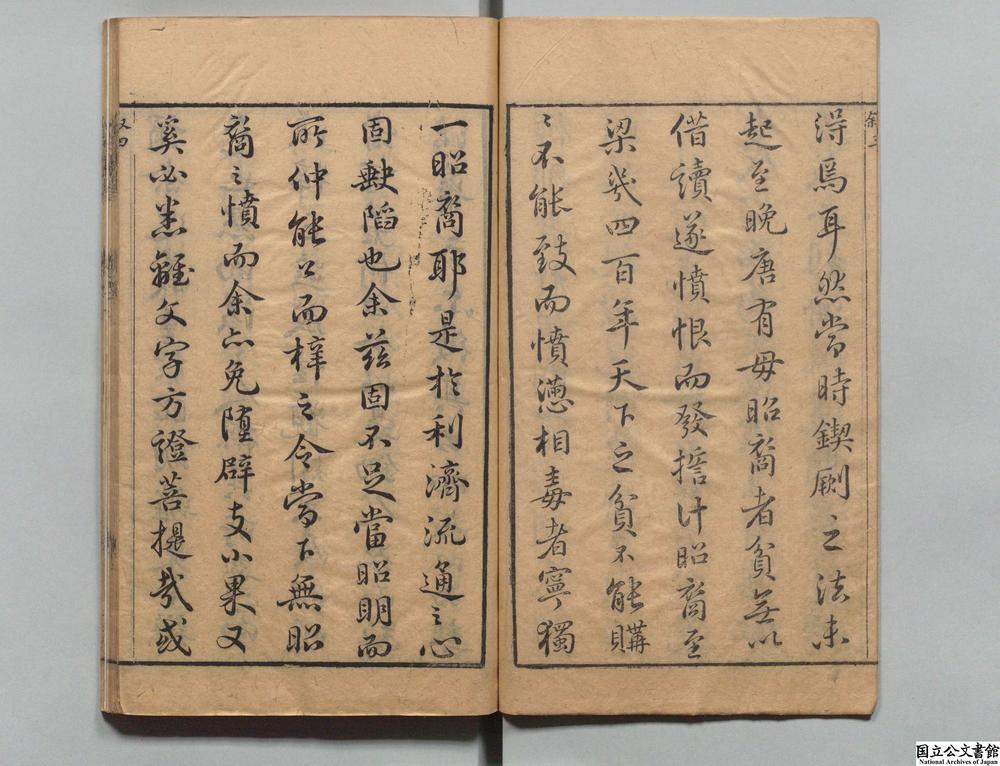 得焉耳然當時鍥劂之法未
起至晚唐有毋昭裔者貧無以
借讀遂憤恨而發㨗計昭裔至
梁幾四百年天下之貧不能購
〻不能致而憤懣相毒者寧獨
一昭裔耶是於利濟流通之心
固缺陷也余茲固不足當昭明而
所仲能公而梓之令當下無昭
裔之憤而余亦免墮辟支小果又
奚必悉離文字方證菩提哉或
叙三
叙四
国立公文書館
National Archives of Japan